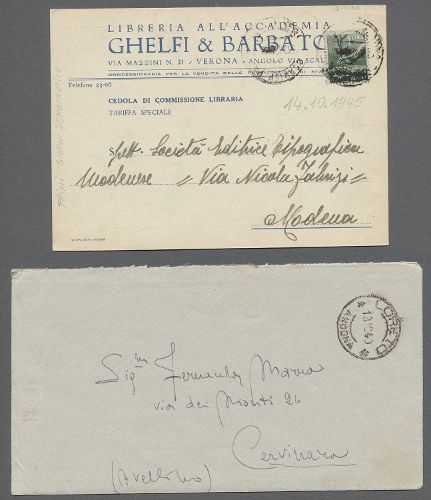 LIBRERIA ALL'ACCADEMIA
GHELFI & BARBATO
VIA MAZZINI N. 21 - VERONA - ANGOLO VIA SCALA
CONCESSIONARIA PER LA VENDITA DELLE
Telefono 23-06
CEDOLA DI COMMISSIONE LIBRARIA
TARIFFA SPECIALE
14.10.1945
Spett. Società Editrice Tipografica
Modenese = Via Nicola Fabrizi =
Modena
LORETO
ANCONA
Sig.
via dei 26
Cervinara
(Avellino)